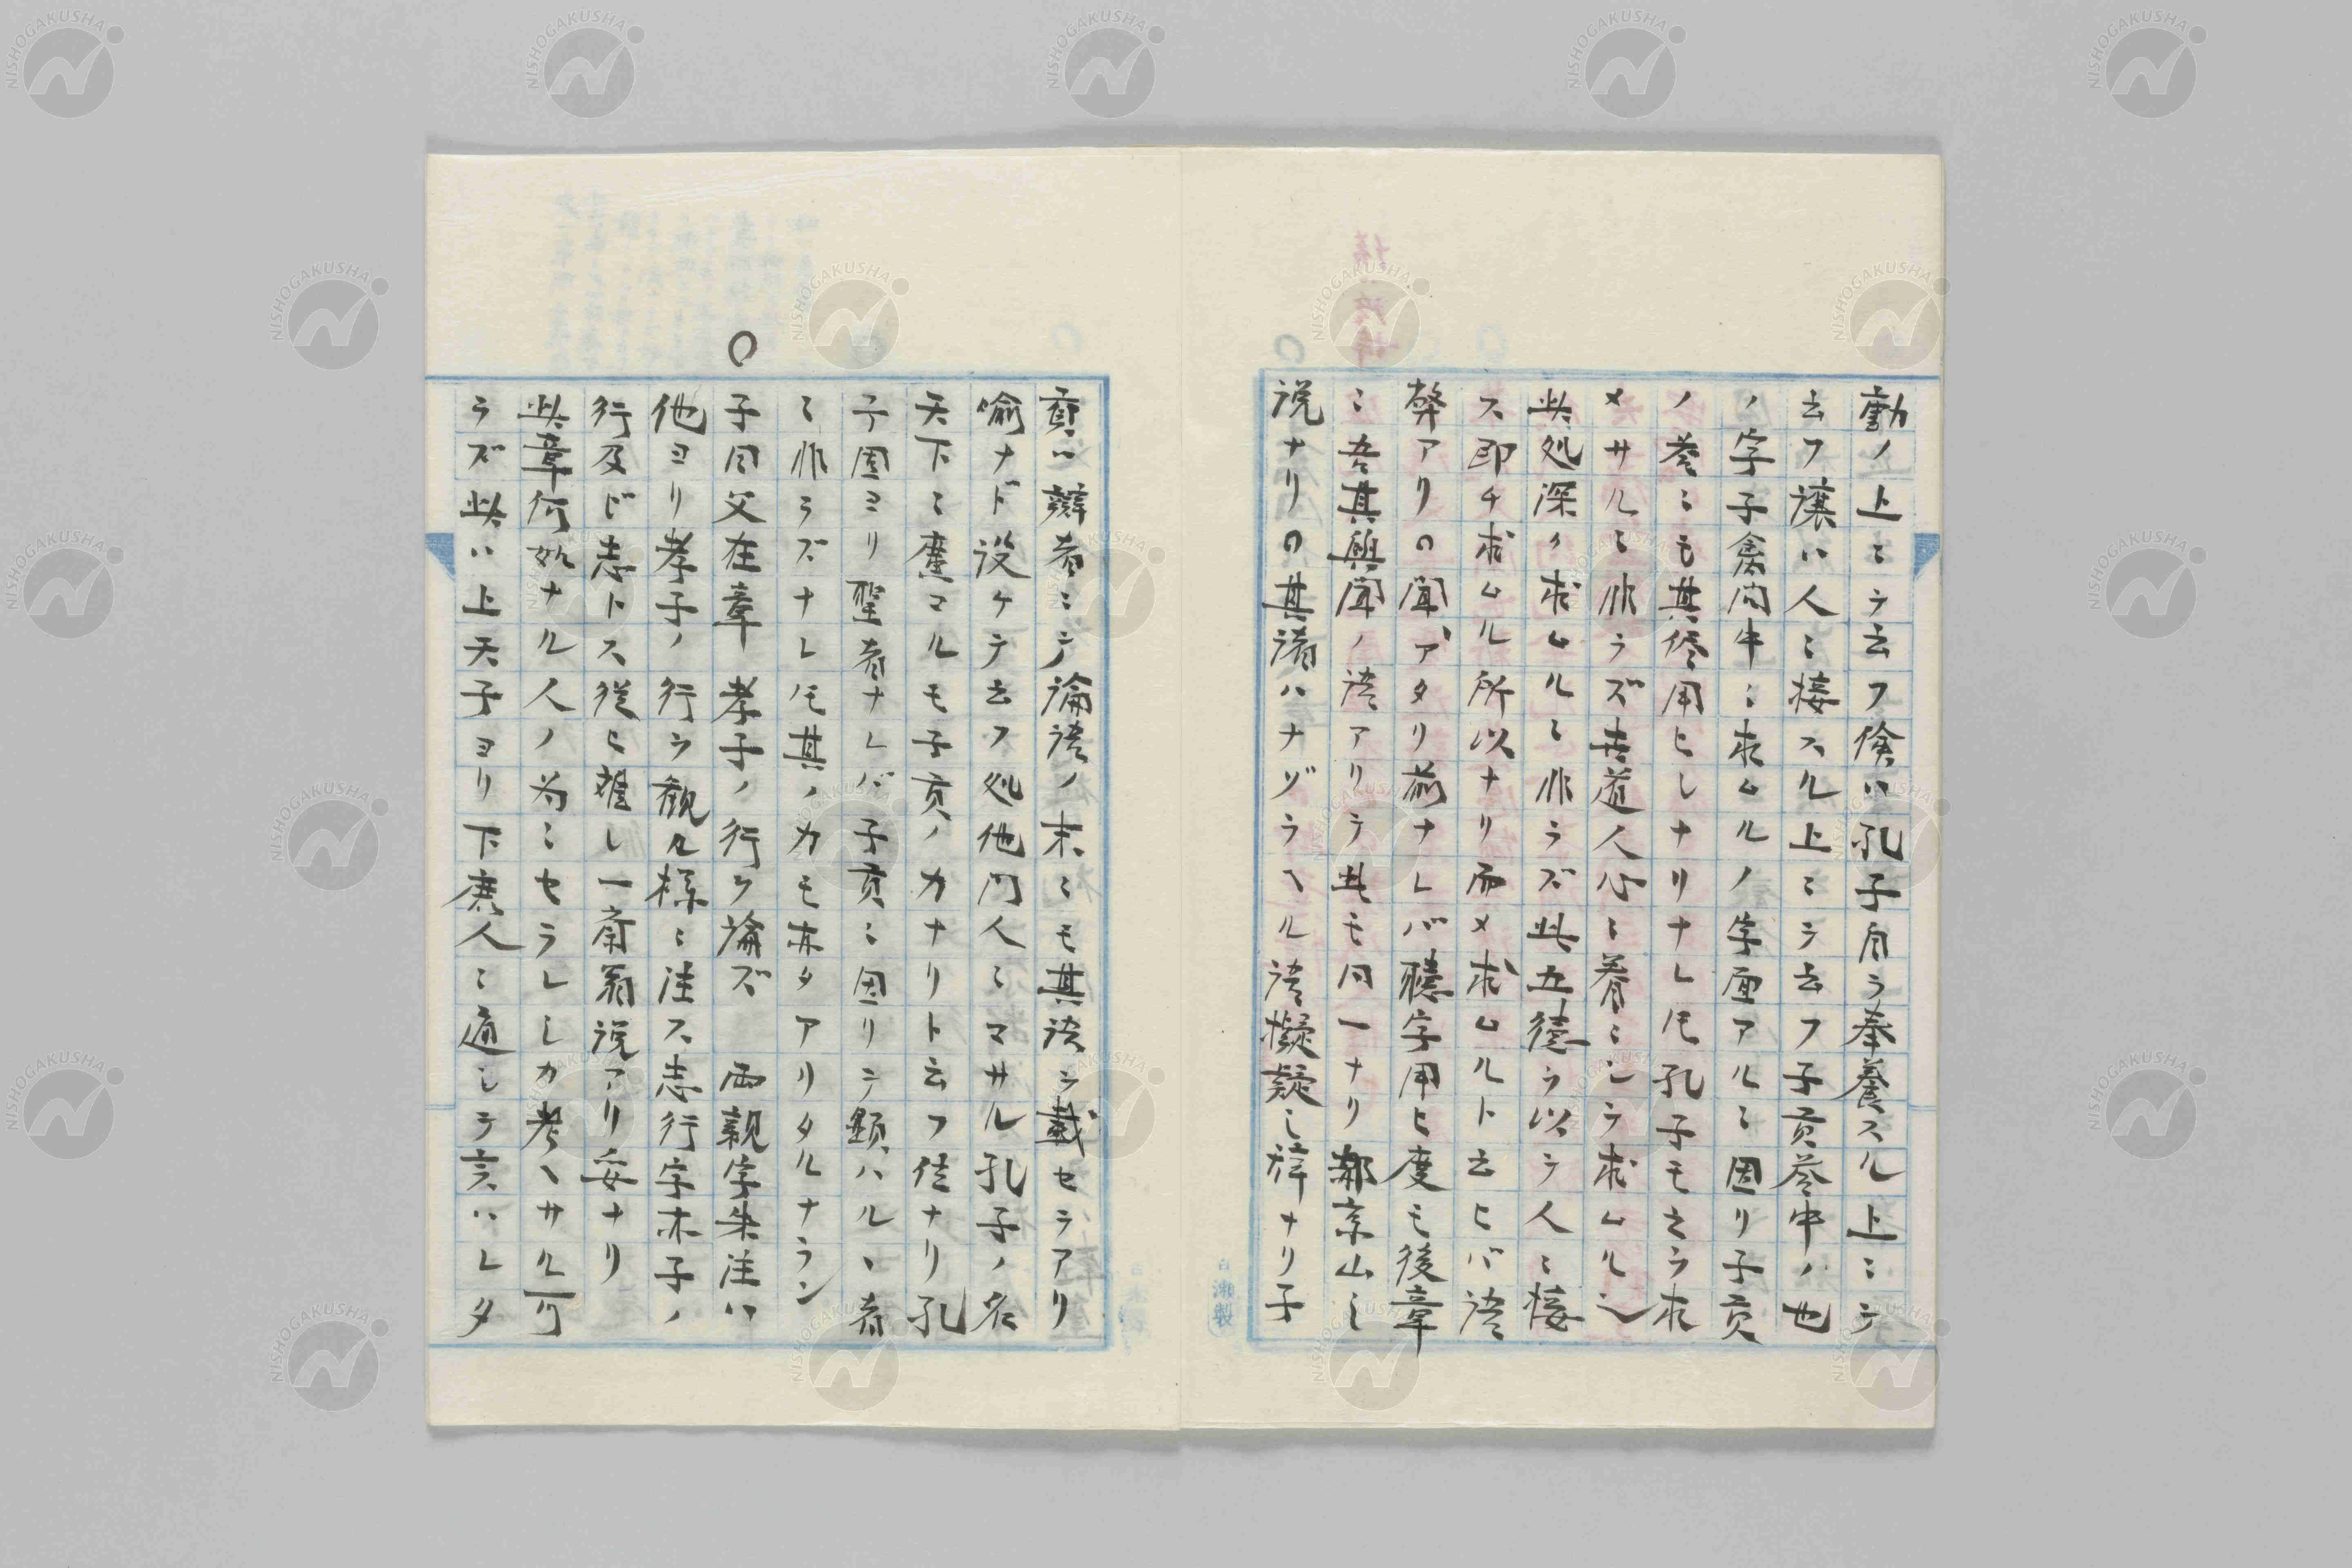 動ノ上ニテ云フ儉ハ孔子自ラ奉養スル上ニテ
云フ譲ハ人ニ接スル上ニテ云フ子貢荅中ノ也
ノ字子禽問中ニ求ムルノ字面アルニ因リ子貢
ノ荅ニモ其侭用ヒシナリナレ𪜈孔子モ之ヲ求
メサルニ非ラズ夫道人心ニ養ミシヲ求ムル
此処深ク求ムルニ非ラズ此五徳ヲ以ラ人ニ接
ス即チ求ムル所以ナリ而メ求ムルト云ヒバ語
弊アリ聞アタリ前ナレバ聽字用ヒ度モ後章
ニ吾其與聞ノ語アリテ此モ同一ナリ鄰京山ノ
説ナリ其諸ハナゾラヘル語擬疑ノ辞ナリ子
貢ハ辯者ニテ論語ノ末ニモ其語ヲ載セテアリ
喩ナド設ケテ云フ処他門人ニマサル孔子ノ名
天下ニ廣マルモ子貢ノ力ナリト云フ位ナリ孔
子固ヨリ聖者ナレバ子貢ニ因リテ顕ハルヽ者
ニ非ラズナレ𪜈其ノ力モ亦タアリタルナラン
○子曰父在章 孝子ノ行ヲ論ズ 両親字朱注ハ
他ヨリ孝子ノ行ヲ観ル様ニ注ス志行字木子ノ
行及ビ志トス從ヒ難シ一斎翁説アリ妥ナリ
此章何如ナル人ノ為ニセラレシカ考ヘサル可
ラズ此ハ上天子ヨリ下庶人ニ通シテ言ハレタ
NISHOGAKUSHA